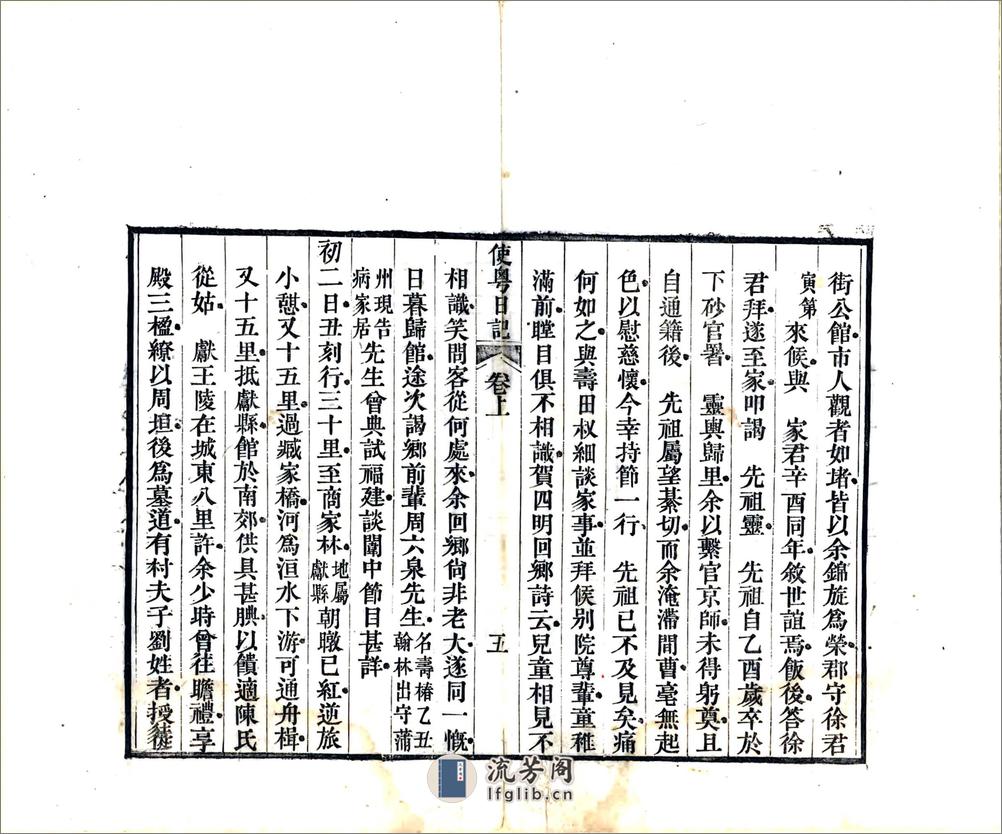 街公館市人觀者如堵皆以余錦旋爲榮郡守徐君
寅第來候與 家君辛酉同年敘世誼焉飯後答徐
君拜遂至家叩謁 先祖靈 先祖自乙酉歲卒於
下砂官署 靈輿歸里余以繫官京師未得躬奠且
自通籍後 先祖屬望綦切而余淹滯閒曹毫無起
色以慰慈懷今幸持節一行 先祖已不及見矣痛
何如之與壽田叔細談家事並拜候別院尊輩童稚
滿前瞠目俱不相識賀四明回鄉詩云兒童相見不
使粵日記 卷上 五
相識笑問客從何處來余回鄉尙非老大遂同一慨
日暮歸館途次謁鄉前輩周六泉先生名壽椿乙丑翰林出守蒲
州現告病家居先生曾典試福建談闈中節目甚詳
初二日丑刻行三十里至商家林地屬獻縣朝暾已紅逆旅
小憩又十五里過臧家橋河爲洹水下游可通舟楫
又十五里抵獻縣館於南郊供具甚腆以饋適陳氏
從姑 獻王陵在城東八里許余少時曾往瞻禮享
殿三楹繚以周垣後爲墓道有村夫子劉姓者授徒
流芳阁
lfglib.cn